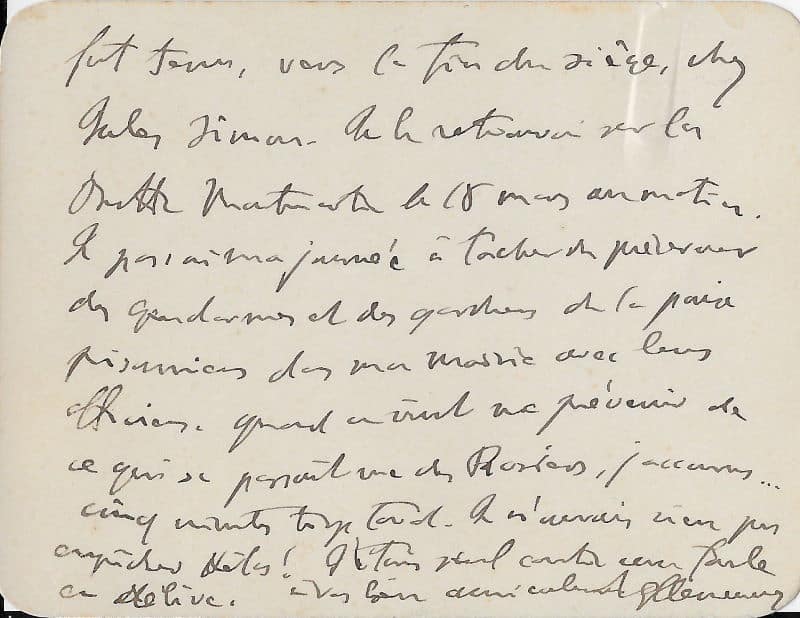 fut tenu, vers la fin du siège, chez
Jules Simon. Je le retrouvai sur la
Butte Montmartre le 18 mars au matin.
Je passai ma journée à tacher de préserver
des gendarmes et des gardiens de la paix
prisonniers dans ma mairie avec leurs
officiers. quand on vint me prévenir de
ce qui se passait rue des Rosiers, j'accourus...
cinq minutes trop tard. Je n'aurais rien pu
empêcher hélas! J'étais seul contre une foule
en délire. à vous bien amicalement GClemenceau